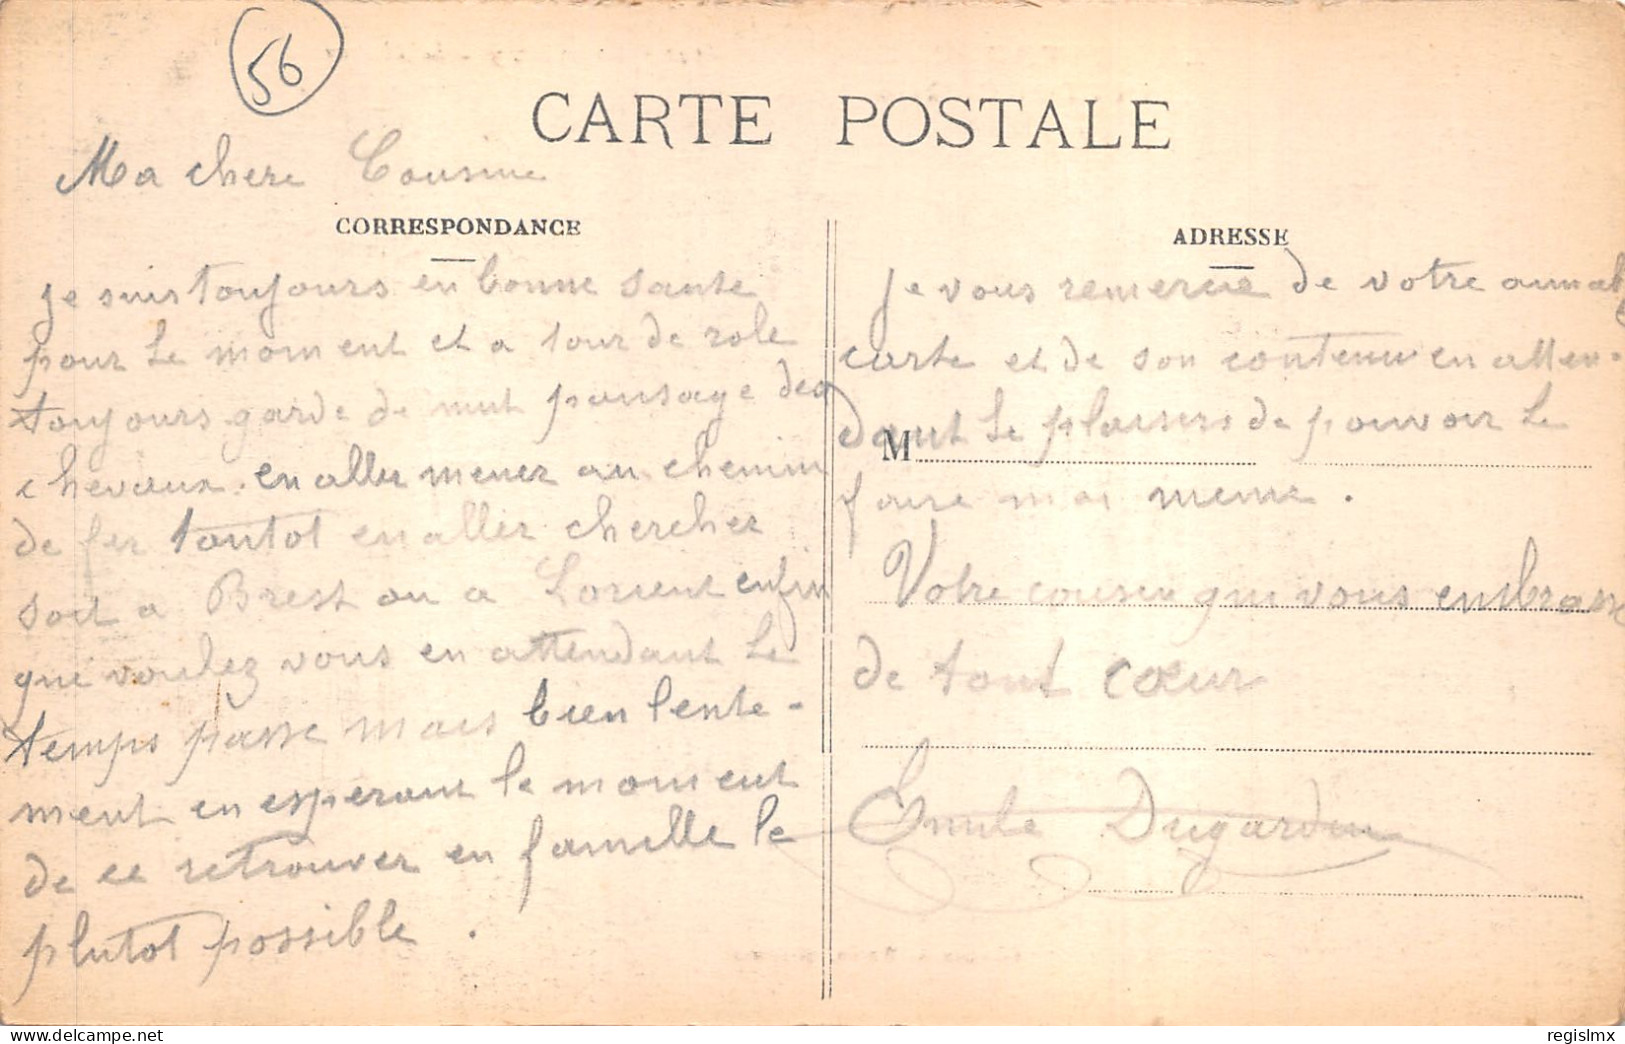 56
CARTE POSTALE
Ma chere Cousine
CORRESPONDANCE
je suis toujours en bonne sante
pour le moment et a tour de role
toujours garde de nuit pansage des
chevaux. en aller mener au chemin
de fer tantot en aller chercher
soit a Brest ou a Lorient enfin
que voulez vous en attendant le
temps passe mais bien lente-
ment en esperant le moment
de ce retrouver en famille le
plutot possible.
ADRESSE
je vous remercie de votre aimable
carte et de son contenu en atten-
dant le plaisirs de pouvoir le
M
faire moi meme.
Votre cousin qui vous embrasse
de tout cœur
Emile Dugardin
delcampe.net
regislmx